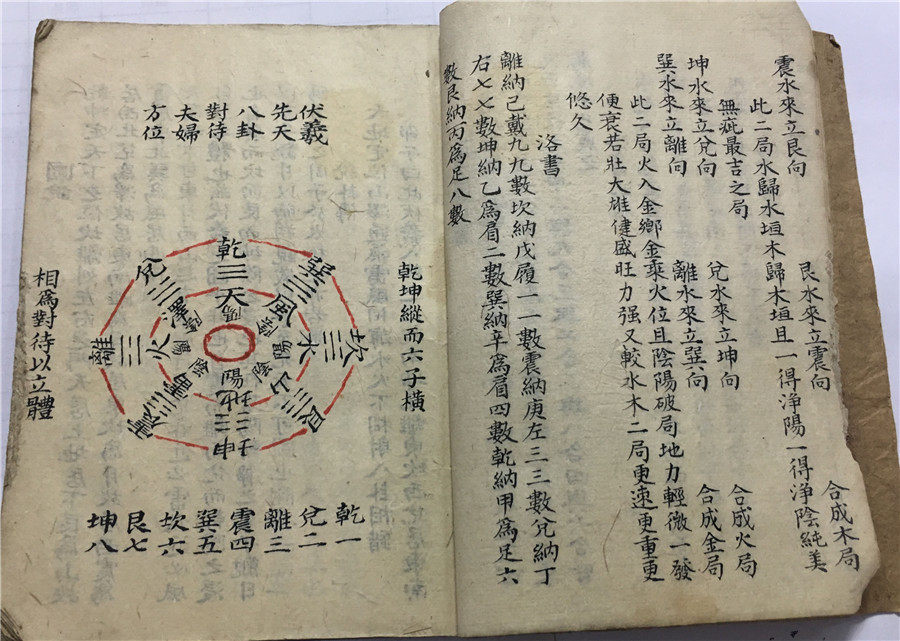 震水來立艮向 艮水來立震向 合成木局
此二局水歸水垣木歸木垣且一得淨陽一得淨陰純美
無疵最吉之局
坤水來立兌向 兌水來立坤向 合成火局
巽水來立離向 離水來立巽向 合成金局
此二局火入金鄉金乘火位且陰陽破局地力輕微一發
便衰若壯大雄健盛旺力强又較水木二局更速更重更
悠久
洛書
離納己戴九九數坎納戊履一一數震納庚左三三數兌納丁
右七七數坤納乙爲肩二數巽納辛爲肩四數乾納甲爲足六
數艮納丙爲足八數
伏羲
先天
八卦
對待
夫婦
方位
乾坤縱而六子橫
乾 天
巽 風
坎 水
艮 山
坤 地 陽
震 雷
離 火 陽
兌 澤 陰
相爲對待以立體
乾一
兌二
離三
震四
巽五
坎六
艮七
坤八